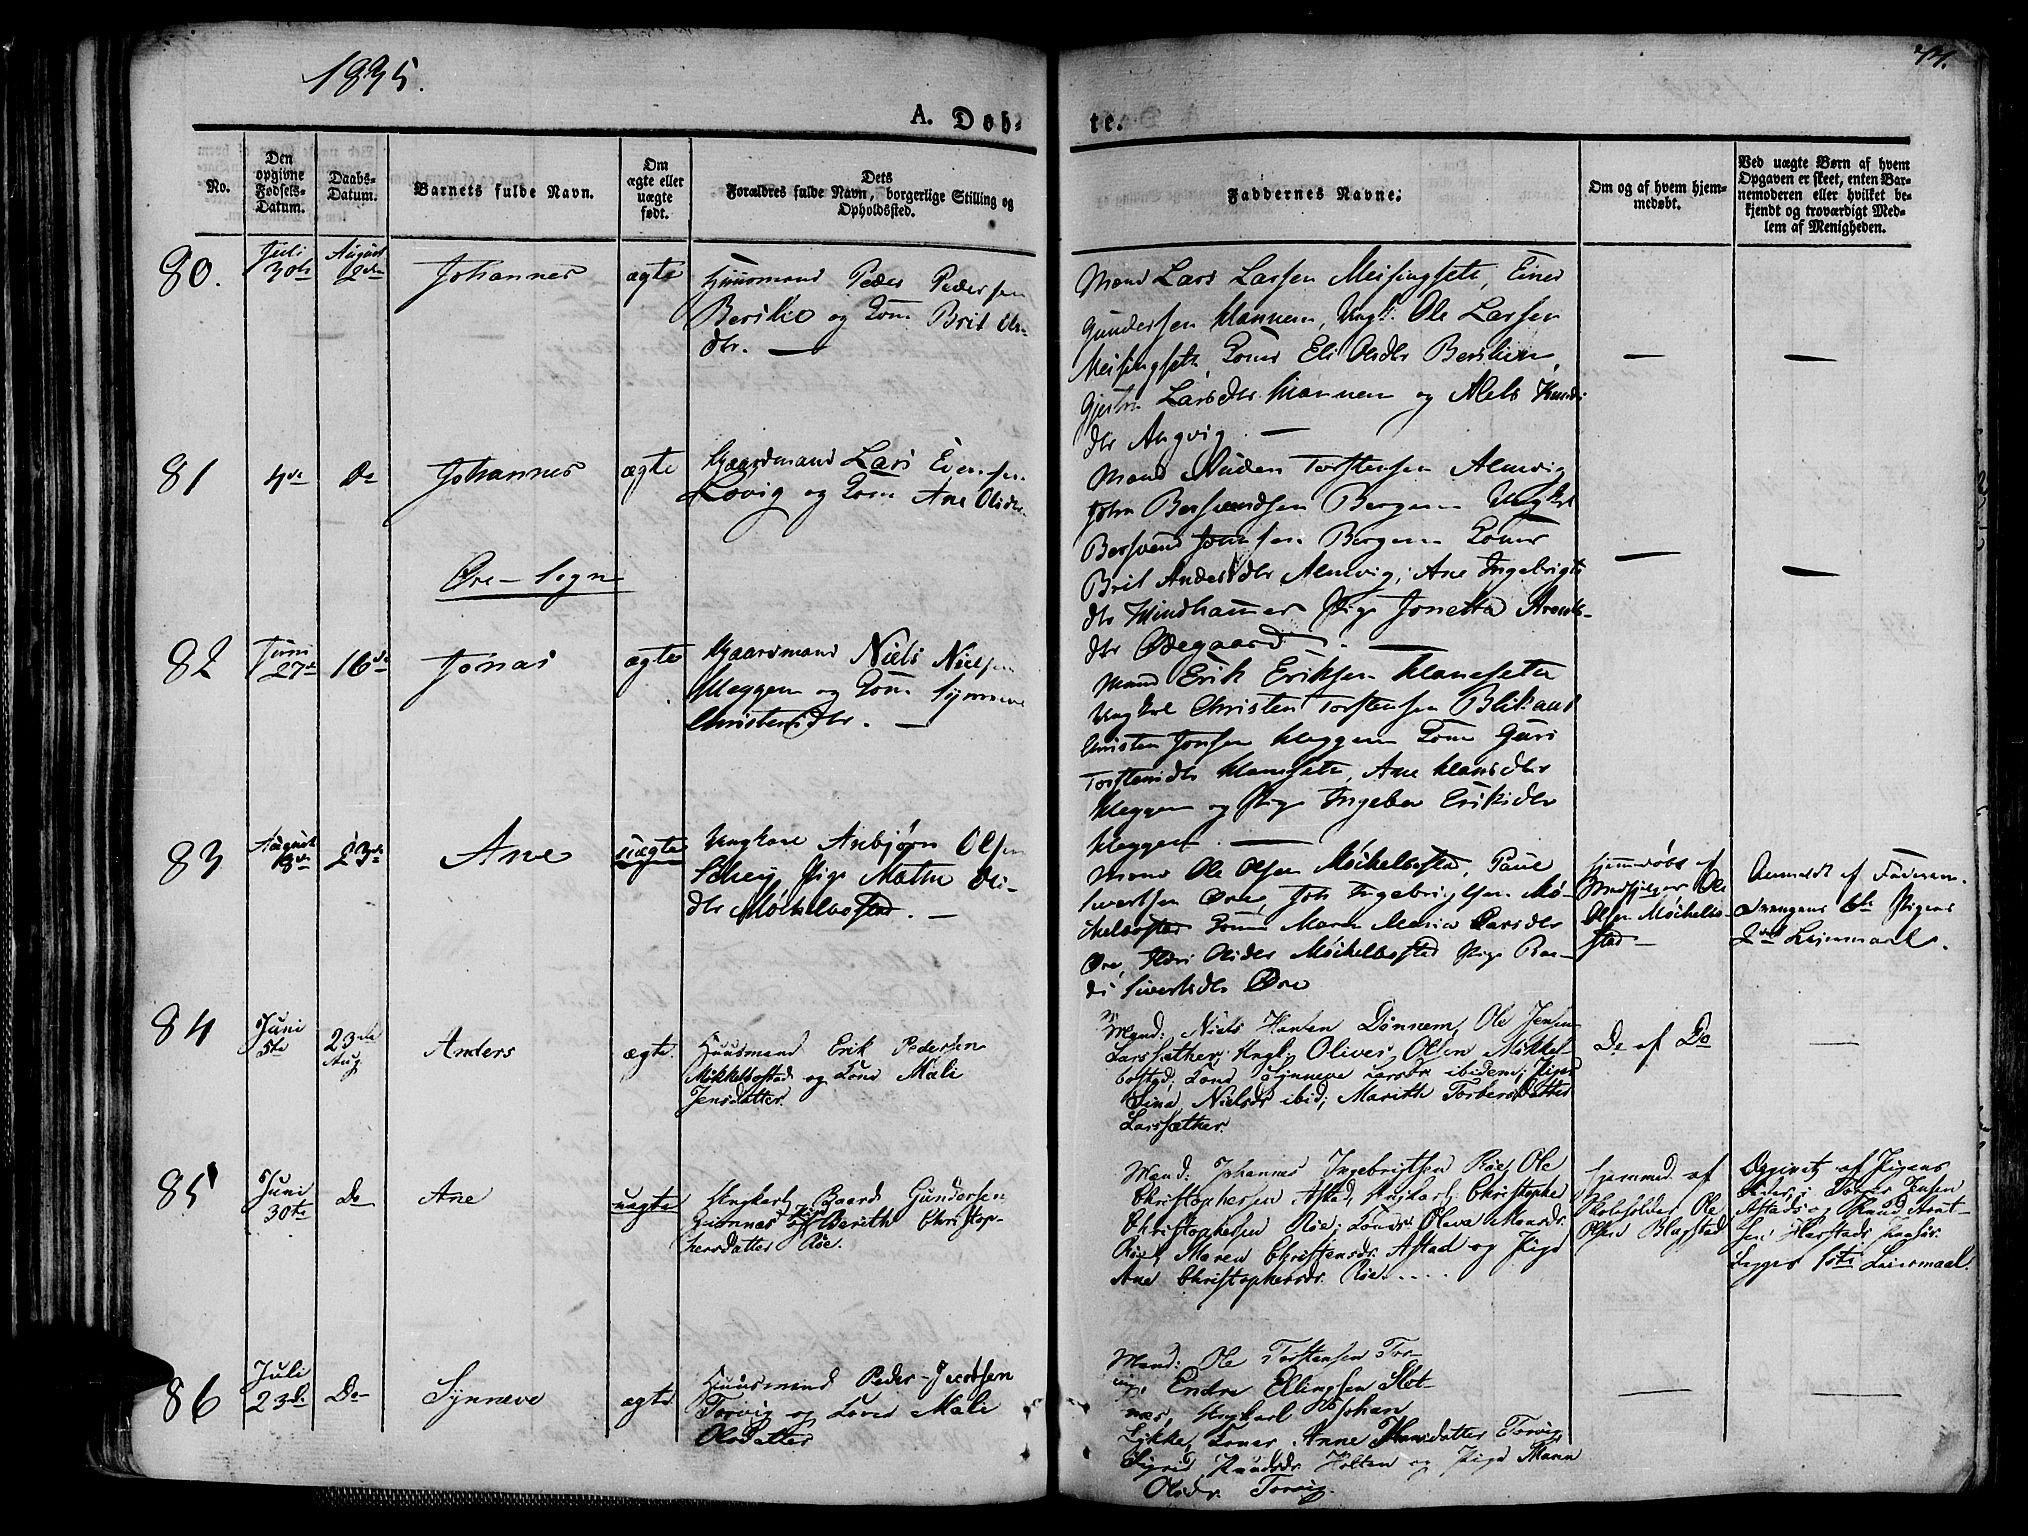 1835.
74.
A. Døb-
te.
No.
Den opgivne Fødsels-Datum.
Daabs-Datum.
Barnets fulde Navn.
Om ægte eller uægte født.
Dets Forældres fulde Navn, borgerlige Stilling og Opholdssted.
Faddernes Navne.
Om og af hvem hjem-medøbt.
Ved uægte Børn af hvem Opgaven er skeet, enten Bar-nemoderen eller hvilket be-kjendt og troværdigt Med-lem af Menigheden.
80.
Juli
30te
August
2den
Johannes
ægte
Huusmand Peder Pedersen
Berslie og Kone Brit Ols-
dtr. —
Mænd Lars Larsen Meisingseth, Einer
Gundersen Hannem, Ungk. Ole Larsen
Meisingseth, Koner Eli Olsdtr Berslien
Larsdtr Hannem og
dtr Angvig —
81
4de
Do
Johannes
ægte
Gaardmand Lars Evensen
og Kone Ane Olsdtr.
Mænd Torstensen Almvig
John Bersvendsen Bergem Ungkrl
Bersvend Bergem Koner
Brit Andersdtr Almvig, Ane Ingebrigts
dtr Windhammer Pige Jonetta
dtr Ødegaard —
Øre-Sogn
82
Juni
27de
16de
Jonas
ægte
Gaardmand Niels Nielsen
Heggem og Kone Synneve
Christensdtr. —
Mænd Erik Eriksen Hanseth
Ungkrl Christen Torstensen
Christen Jonsen Heggem Kone Guri
Torstensdtr Hanseth, Ane Hansdtr
Heggem og Pige Ingebor Eriksdtr
Heggem —
83
August
23de
Ane
uægte
Ungkarl Anbjørn Olsen
Pige Mathe Ols-
dtr Møckelbostad. —
Mænd Ole Olsen Møckelbostad, Paul
Sivertsen Øre, Ingebrigtsen Mø-
ckelbostad Koner Maren Maria Larsdtr
Øre, Olsdtr Møckelbostad Pige Ra-
di Sivertsdtr Øre
Hjemdøbt af
Medhjelper Ole
Olsen Møckelbo-
stad —
Anmeldt af Faderen.
Drengens 6te Pigens
2det Leiermaal.
84
Juni
5te
23de
Aug.
Anders
ægte.
Huusmand Erik Pedersen
Mikkelbostad og Kone Mali
Jensdatter.
Mænd: Niels Hansen Dønnem, Ole Jensen
Larssæther; Ungk. Oliver Olsen Mikkel-
bostad; Kone Synneve Larsdr ibidem; Pige
Sina Nielsdr ibid; Marith Torbersdatter
Larssæther.
Do af Do
85
Juni
30te
Do
Ane
uægte
Ungkarl Baard Gundersen
og Pige Berith Christop-
hersdatter Røe.
Mænd: Johannes Ingebrigtsen Røe, Ole
Christophersen Astad, Ungkarl: Christophe
Christophersen Røe; Koner: Oleva Monsdr
Røe, Maren Christensdr Astad og Pige
Ane Christophersdr. Røe.....
Hjemmed. af
Skoleholder Ole
Olsen Blagstad
Opgivet af Pigens
Astad og Knud Arnt-
sen Harstad;
begges 1ste Leiermaal.
86
Juli
23de
Do
Synneve
ægte
Huusmand Peder Jacobsen
Torvig og Kone Mali
Olsdatter
Mænd: Ole Torstensen Tor-
vig, Endre Ellingsen Slet-
næs, Ungkarl Johan
Lykke, Koner Anne Hansdatter Torvig
Sigrid Knudsdr Holten og Pige Maren
Olsdr. Torvig.